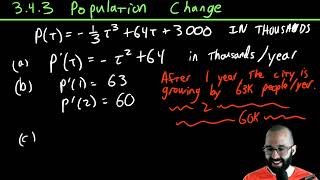 3.4.3 Population Change
P(t) = -1/3 t³ + 64t + 3000 IN THOUSANDS
(a) P'(t) = - t² + 64 in thousands/year
(b) P'(1) = 63
P'(2) = 60
After 1 year, the city is growing by 63K people/year.
~~ 2 ~~
~~ 60K ~~
(c)